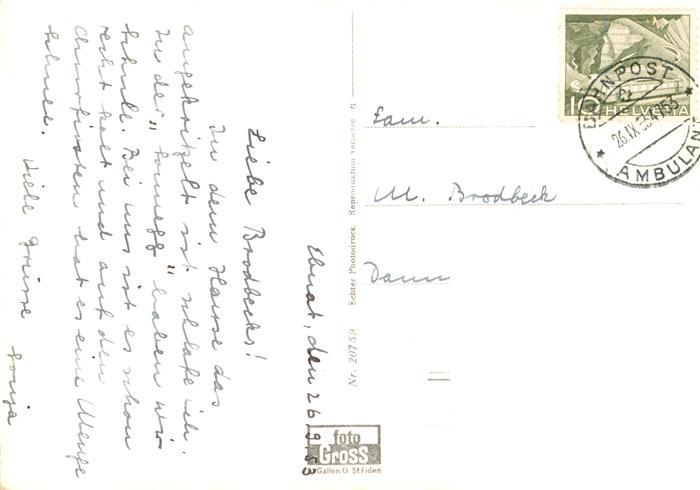 Ebnat, den 26.9.53
Liebe Brodbecks!
In dem Hause das
angekritzelt ist schlafe ich.
In der „Sonnegg" haben wir
Schule. Bei uns ist es schon
recht kalt und auf den
Churfirsten hat es eine Menge
Schnee.
Viele Grüsse
Sonja
Nr. 20759 Echter Photodruck Reproduktion verboten
foto
GROSS
Gallen O St.Fiden
Fam.
M. Brodbeck
HELVETIA
BAHNPOST
26.IX.53
AMBULANT